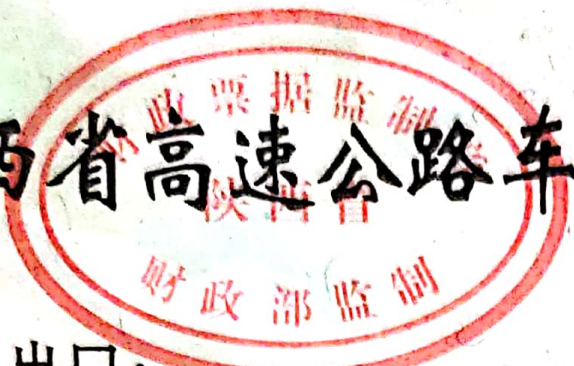 财政票据监制章
西省高速公路车
陕西省
财政部监制
出口: